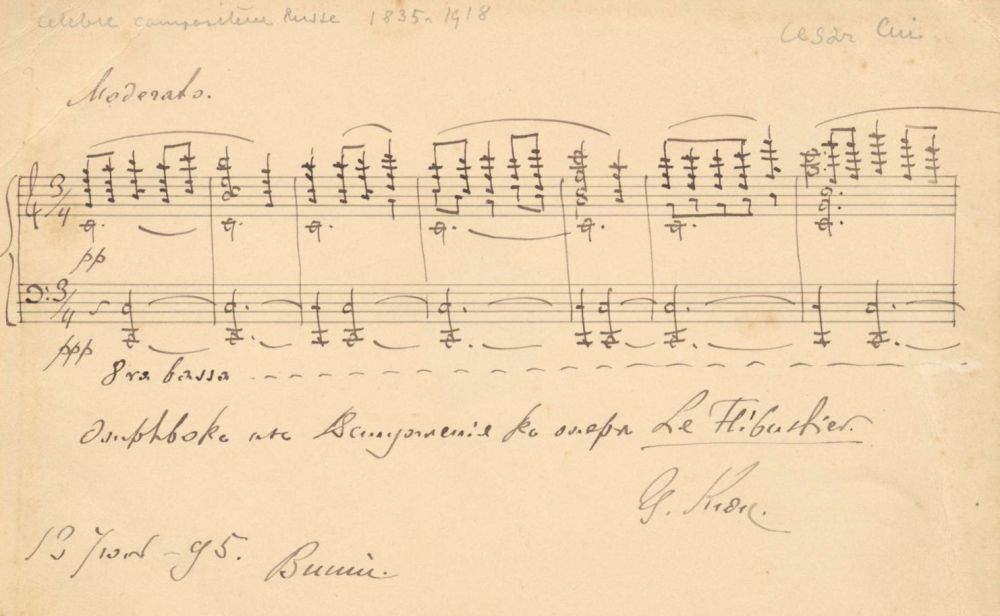 Celebre compositeur Russe 1835-1918
Cesar Cui
Moderato.
3/4
pp
3/4
ppp
8va bassa
Отрывокъ изъ Вступленія къ оперѣ Le Flibustier.
Ц. Кюи.